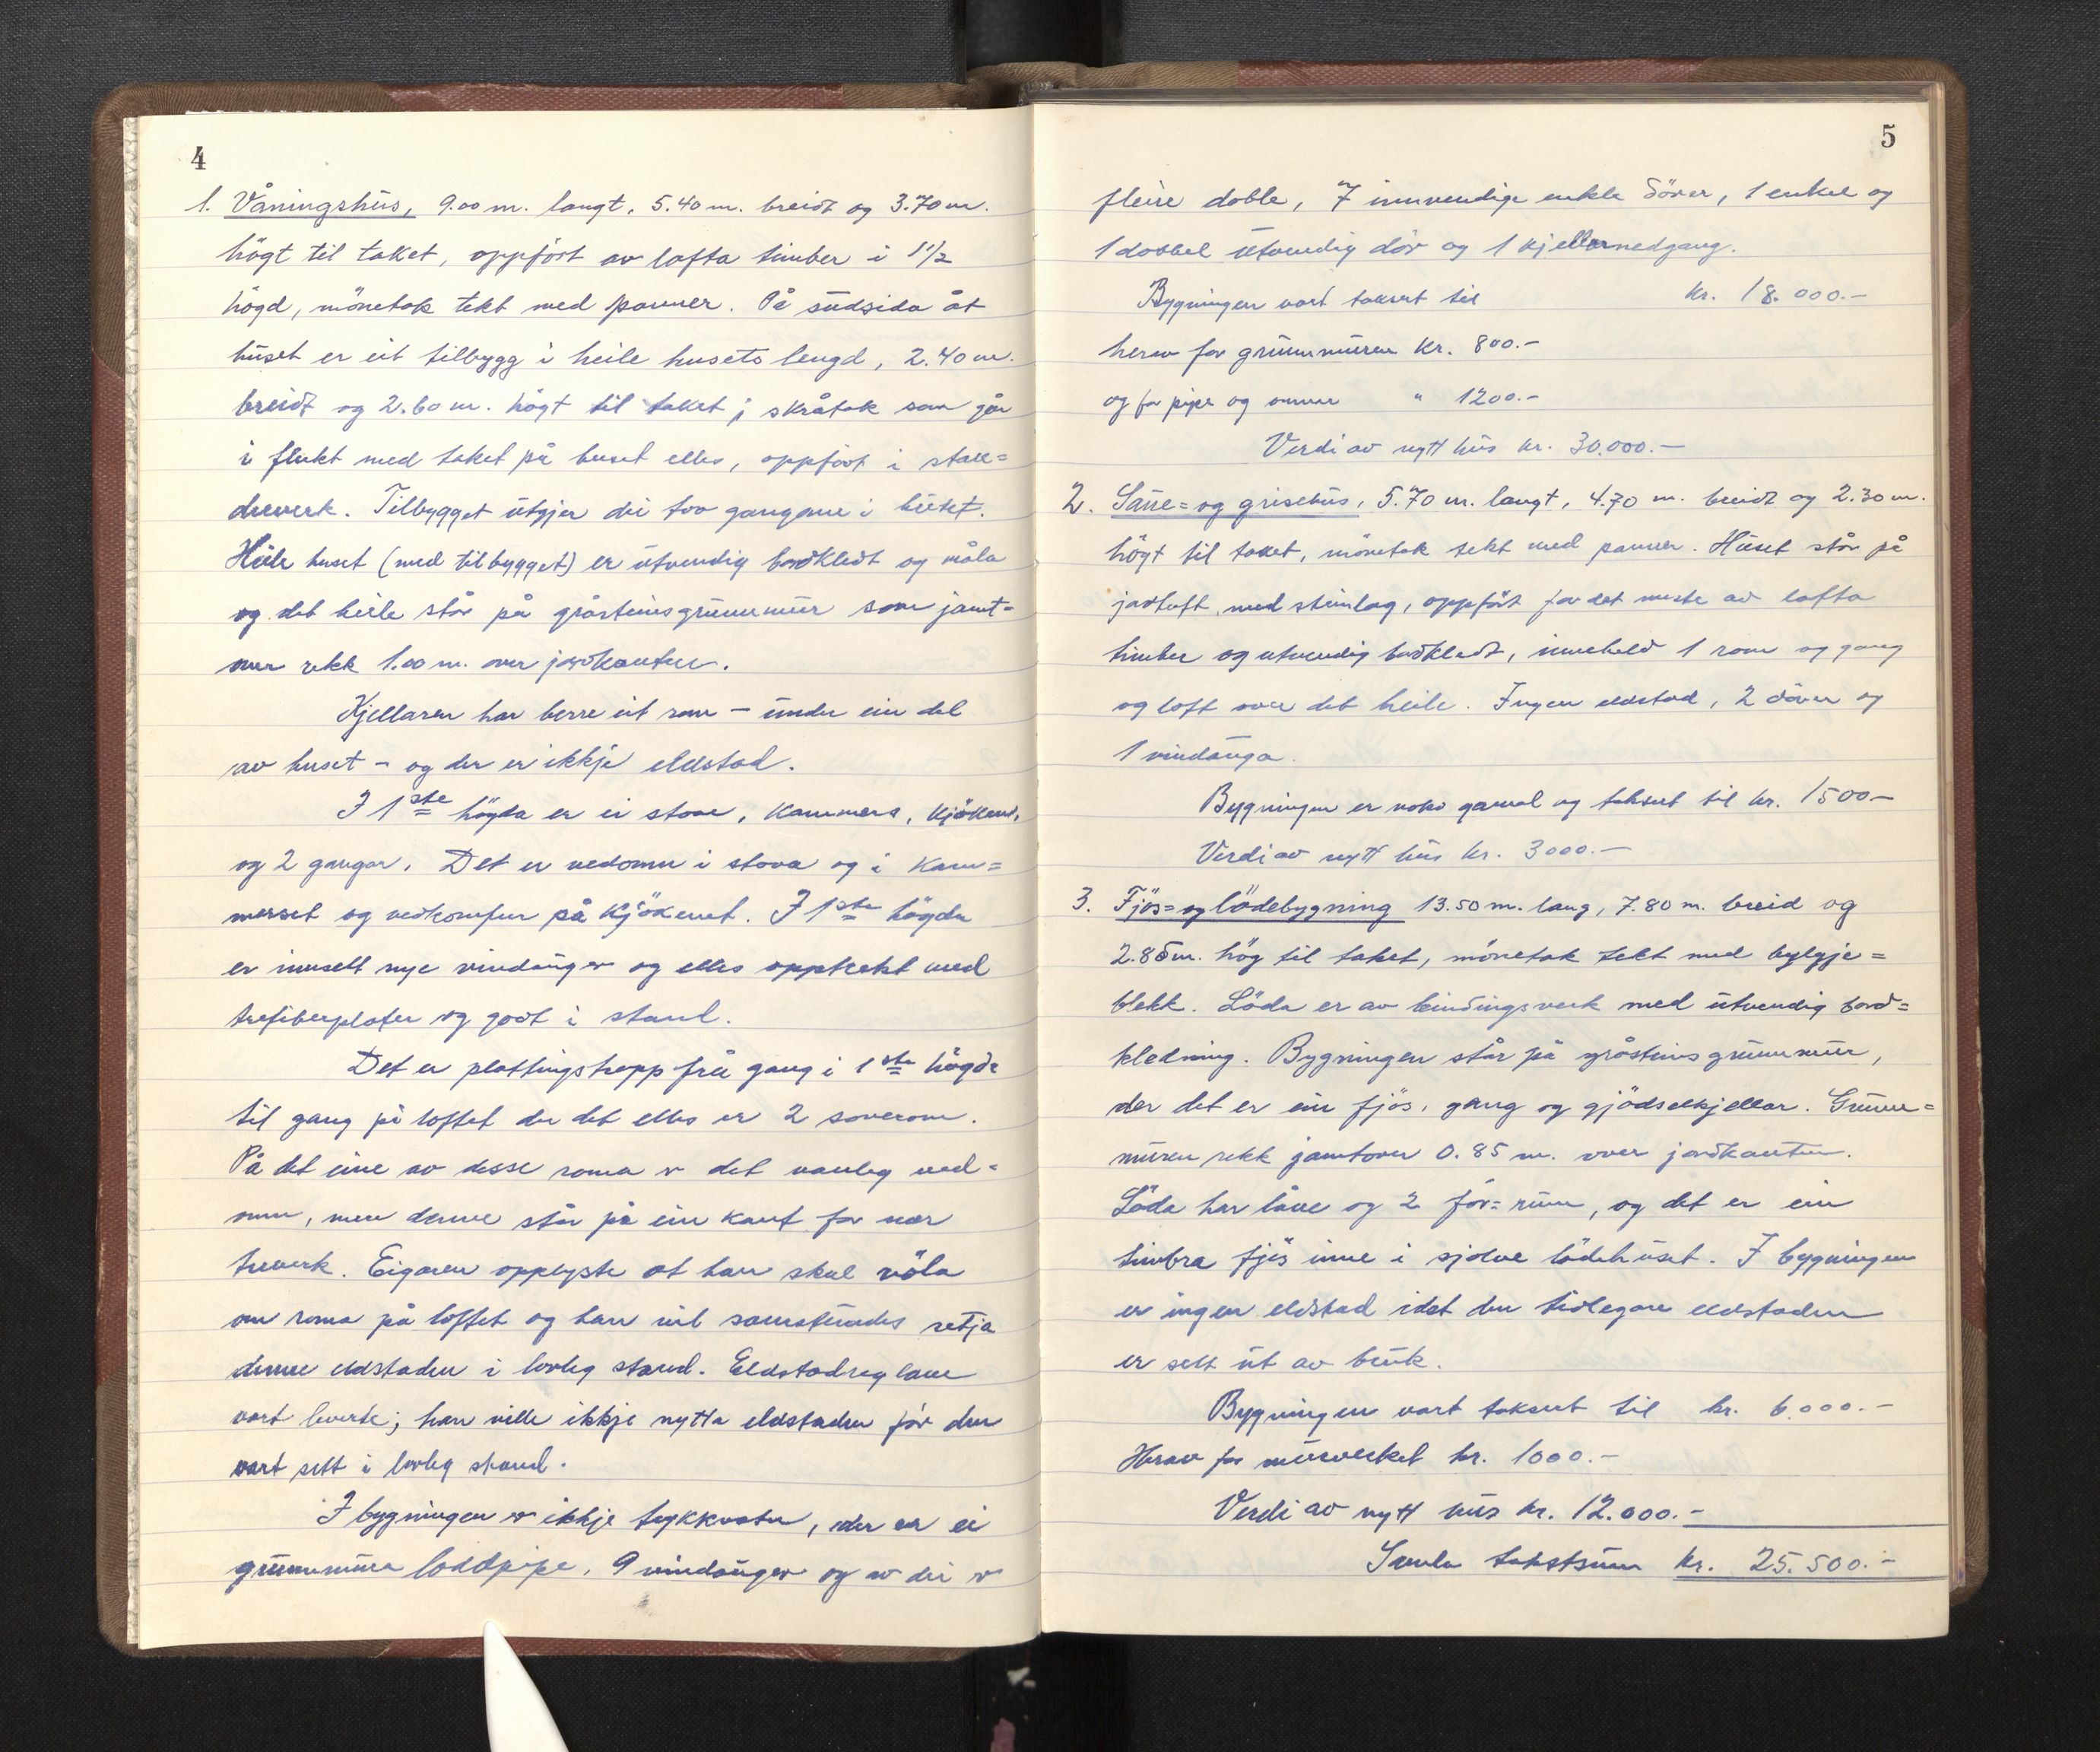 4
1. Våningshus, 9.00 m. langt, 5.40 m. breidt og 3.70 m.
högt til taket, oppfört av lafta timber i 1 1/2
högd, mönetak tekt med panner. På sudsida åt
huset er eit tilbygg i heile husets lengd, 2.40 m.
breidt og 2.60 m. högt til taket i skråtak som går
i flukt med taket på huset elles, oppfört i stav=
dreverk. Tilbygget utgjer dei tvo gangane i huset.
Heile huset (med tilbygget) er utvendig bordkledt og måla
og det heile står på gråsteinsgrunnmur som jamt-
over rekk 1.00 m. over jordkanten.
Kjellaren har berre eit rom - under ein del
av huset - og der er ikkje eldstad.
I 1ste högda er ei stove, kammers, kjökken,
og 2 gangar. Det er vedomn i stova og i kam=
merset og vedkomfur på kjökenet. I 1ste högda
er innsett nye vindauger og elles opptrekt med
trefiberplater og godt i stand.
Det er plattingstrapp frå gang i 1ste högde
til gang på loftet der det elles er 2 soverom.
På det eine av desse roma er det vanleg ved-
omn, men denne står på ein kant for nær
treverk. Eigaren opplyste at han skal völa
om roma på loftet og han vil samstundes setja
denne eldstaden i lovleg stand. Eldstadreglane
vart leverte; han ville ikkje nytta eldstaden för den
vart sett i lovleg stand.
I bygningen er ikkje trykkvatn, der er ei
grunnmura loddpipe, 9 vindauger og av dei er
5
fleire doble, 7 innvendige enkle dörer, 1 enkel og
1 dobbel utvendig dör og 1 kjellarnedgang.
Bygningen vart taksert til kr. 18.000.-
herav for grunnmuren kr. 800.-
og for pipe og omnar " 1200.-
Verdi av nytt hus kr. 30.000.-
2. Saue= og grisehus, 5.70 m. langt, 4.70 m. breidt og 2.30 m.
högt til taket, mönetak tekt med panner. Huset står på
jordtuft med steinlag, oppfört for det meste av lafta
timber og utvendig bordkledt, inneheld 1 rom og gang
og loft over det heile. Ingen eldstad, 2 dörer og
1 vindauga.
Bygningen er noko gamal og taksert til kr. 1500-
Verdi av nytt hus kr. 3000.-
3. Fjös= og lödebygning 13.50 m. lang, 7.80 m. breid og
2.85 m. hög til taket, mönetak tekt med bylgje=
blekk. Löda er av bindingsverk med utvendig bord=
kledning. Bygningen står på gråsteins grunnmur,
der det er ein fjös, gang og gjödselkjellar. Grunn=
muren rekk jamtover 0.85 m. over jordkanten.
Löda har låve og 2 fór=rum, og det er ein
timbra fjös inne i sjölve lödehuset. I bygningen
er ingen eldstad idet den tidlegare eldstaden
er sett ut av bruk.
Bygningen vart taksert til kr. 6.000.-
Herav for murverket kr. 1000.-
Verdi av nytt hus kr. 12.000.-
Samla takstsum kr. 25.500.-